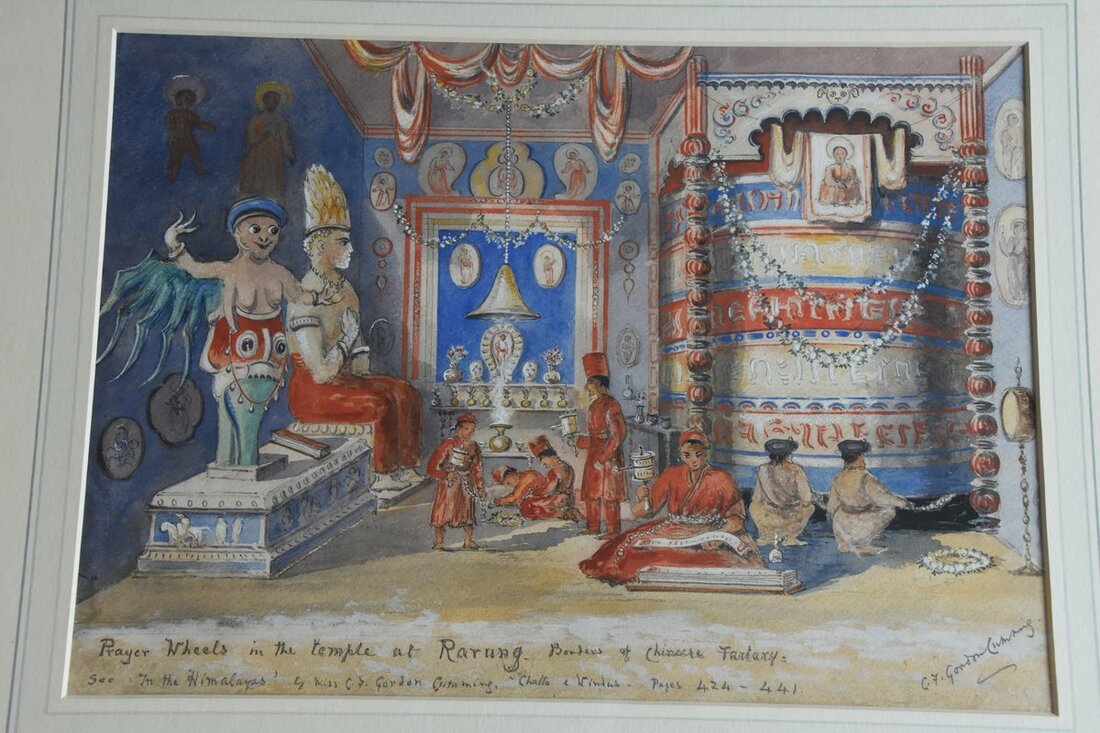 Prayer Wheels in the temple at Rarung. Borders of Chinese Tartary.
See 'In the Himalayas' by Miss C.F. Gordon Cumming. Chatto & Windus. Pages 424 - 441.
C.F. Gordon Cumming.